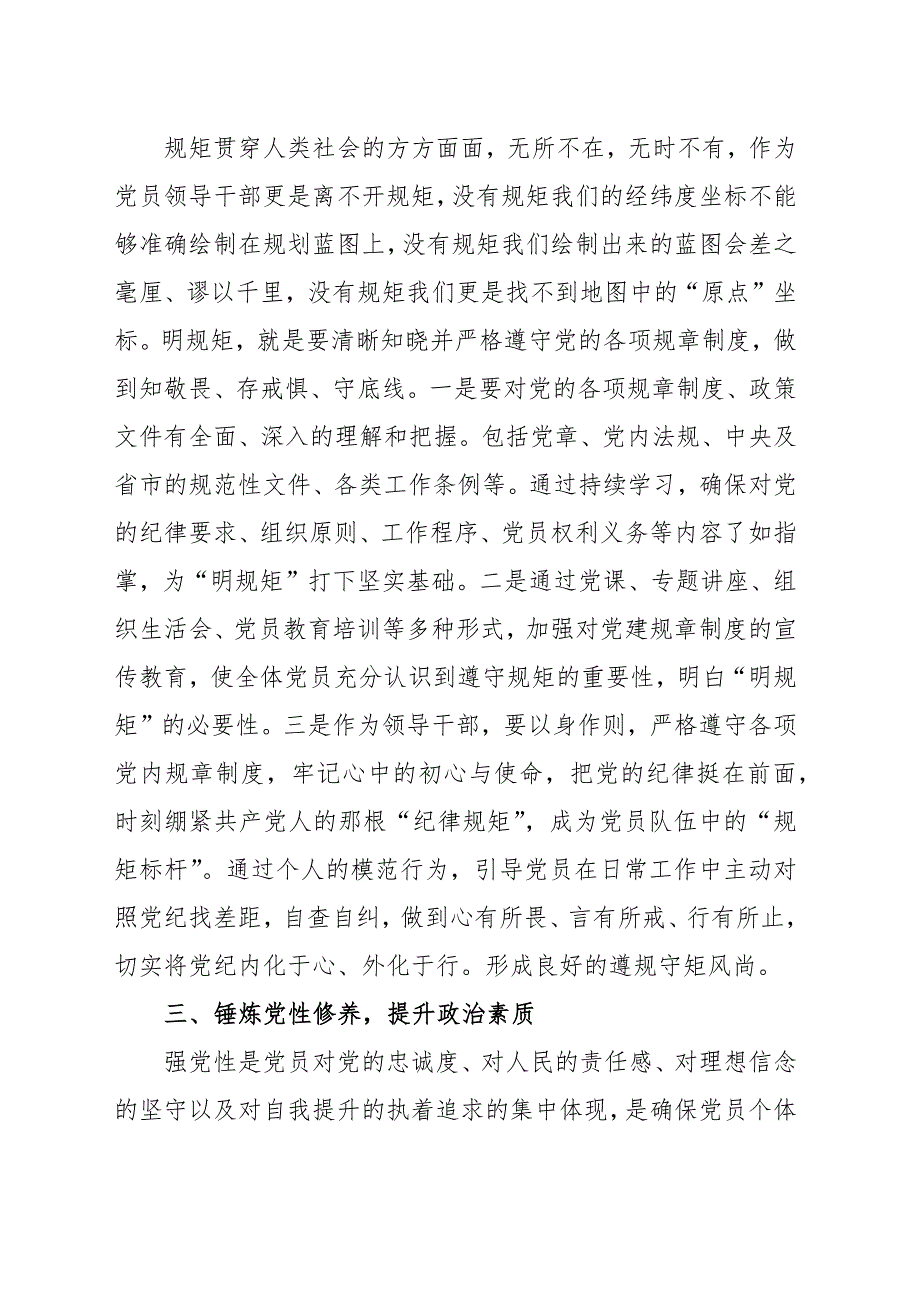 规矩贯穿人类社会的方方面面，无所不在，无时不有，作为
党员领导干部更是离不开规矩，没有规矩我们的经纬度坐标不能
够准确绘制在规划蓝图上，没有规矩我们绘制出来的蓝图会差之
毫厘、谬以千里，没有规矩我们更是找不到地图中的“原点”坐
标。明规矩，就是要清晰知晓并严格遵守党的各项规章制度，做
到知敬畏、存戒惧、守底线。一是要对党的各项规章制度、政策
文件有全面、深入的理解和把握。包括党章、党内法规、中央及
省市的规范性文件、各类工作条例等。通过持续学习，确保对党
的纪律要求、组织原则、工作程序、党员权利义务等内容了如指
掌，为“明规矩”打下坚实基础。二是通过党课、专题讲座、组
织生活会、党员教育培训等多种形式，加强对党建规章制度的宣
传教育，使全体党员充分认识到遵守规矩的重要性，明白“明规
矩”的必要性。三是作为领导干部，要以身作则，严格遵守各项
党内规章制度，牢记心中的初心与使命，把党的纪律挺在前面，
时刻绷紧共产党人的那根“纪律规矩”，成为党员队伍中的“规
矩标杆”。通过个人的模范行为，引导党员在日常工作中主动对
照党纪找差距，自查自纠，做到心有所畏、言有所戒、行有所止，
切实将党纪内化于心、外化于行。形成良好的遵规守矩风尚。
三、锤炼党性修养，提升政治素质
强党性是党员对党的忠诚度、对人民的责任感、对理想信念
的坚守以及对自我提升的执着追求的集中体现，是确保党员个体